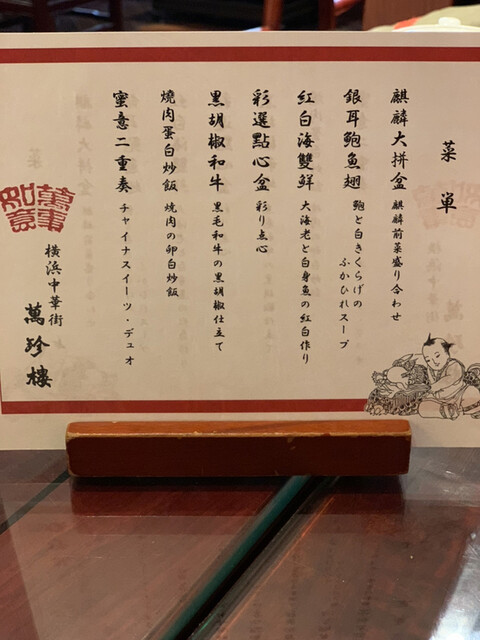 菜単
麒麟大拼盆 麒麟前菜盛り合わせ
銀耳鮑魚翅 鮑と白きくらげの
ふかひれスープ
紅白海雙鮮 大海老と白身魚の紅白作り
彩選點心盒 彩り点心
黒胡椒和牛 黒毛和牛の黒胡椒仕立て
焼肉蛋白炒飯 焼肉の卵白炒飯
蜜意二重奏 チャイナスイーツ・デュオ
萬事如意
横浜中華街
萬珍樓